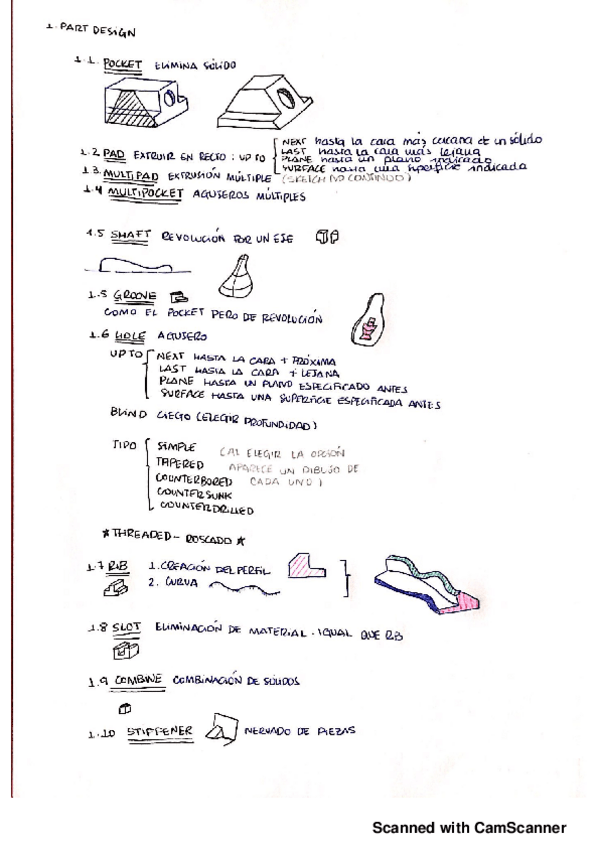 1. PART DESIGN
1.1. POCKET ELIMINA SÓLIDO
1.2 PAD EXTRUIR EN RECTO: UP TO
NEXT hasta la cara más cercana de un sólido
LAST hasta la cara más lejana
PLANE hasta un plano indicado
SURFACE hasta una superficie indicada
1.3. MULTIPAD EXTRUSIÓN MÚLTIPLE (SKETCH NO CONTINUO)
1.4 MULTIPOCKET AGUJEROS MÚLTIPLES
1.5 SHAFT REVOLUCIÓN POR UN EJE
1.5 GROOVE
COMO EL POCKET PERO DE REVOLUCIÓN
1.6 HOLE AGUJERO
UP TO
NEXT HASTA LA CARA + PRÓXIMA
LAST HASTA LA CARA + LEJANA
PLANE HASTA UN PLANO ESPECIFICADO ANTES
SURFACE HASTA UNA SUPERFICIE ESPECIFICADA ANTES
BLIND CIEGO (ELEGIR PROFUNDIDAD)
TIPO
SIMPLE (AL ELEGIR LA OPCIÓN
TAPERED APARECE UN DIBUJO DE
COUNTERBORED CADA UNO)
COUNTERSUNK
COUNTERDRILLED
★THREADED - ROSCADO★
1.7 RIB 1. CREACIÓN DEL PERFIL
2. CURVA
1.8 SLOT ELIMINACIÓN DE MATERIAL. IGUAL QUE RIB
1.9 COMBINE COMBINACIÓN DE SÓLIDOS
1.10 STIFFENER NERVADO DE PIEZAS
Scanned with CamScanner